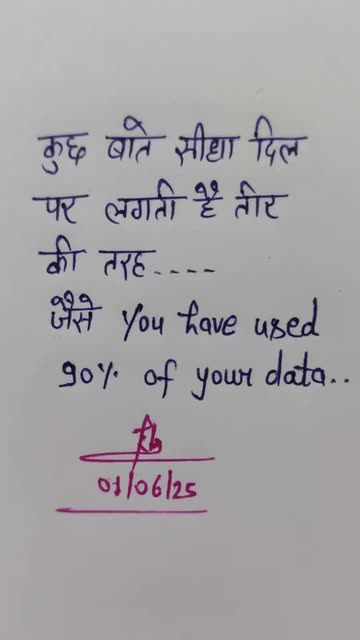 कुछ बाते सीधा दिल
पर लगती है तीर
की तरह....
जैसे You have used
90% of your data..
01/06/25